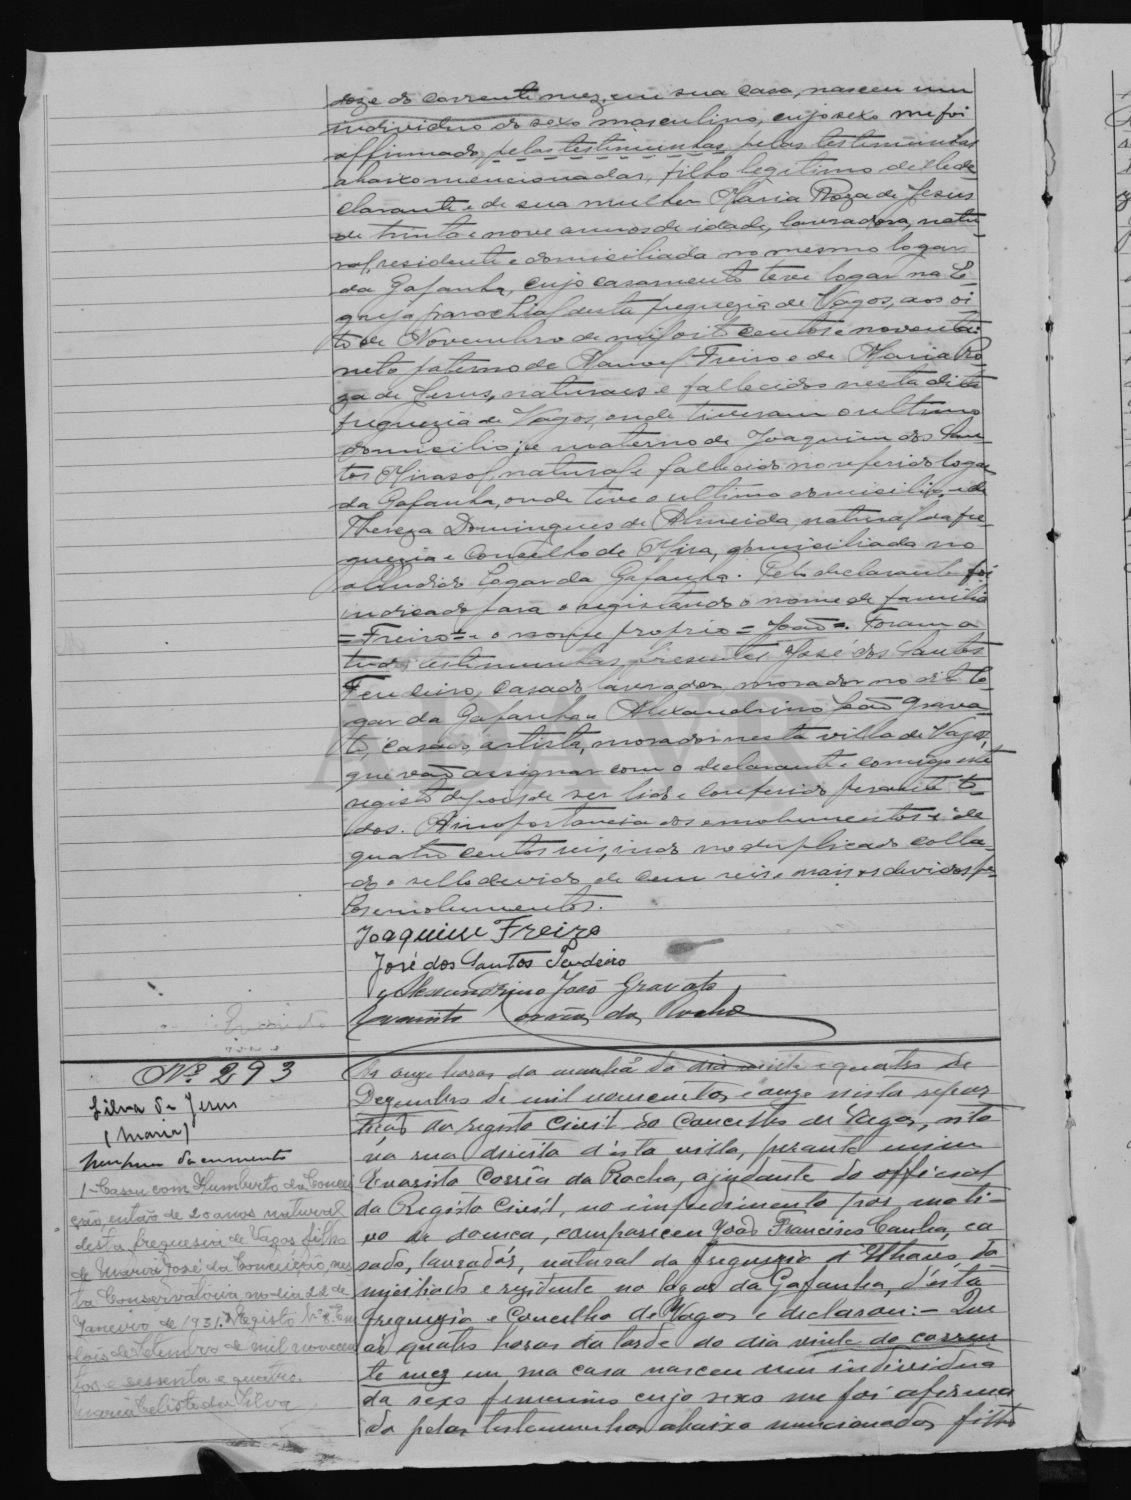 doze do corrente mez, em sua casa, nasceu um
individuo do sexo masculino, cujo sexo me foi
affirmado pelas testimunhas pelas testimunhas
abaixo mencionadas, filho legitimo delle de-
clarante e de sua mulher Maria Roza de Jesus
de trinta e nove annos de idade, lavradora, natu-
ral, residente e domiciliada no mesmo logar
da Gafanha, cujo casamento teve logar na E-
greja parochial desta freguezia de Vagos, aos oi-
to de Novembro de mil oito centos e noventa:
neto paterno de Manoel Freiro e de Maria Ro-
za de Jesus, naturaes e fallecidos nesta dita
freguezia de Vagos, onde tiveram o ultimo
domicilio; e materno de Joaquim dos San-
tos Mirasol, natural e fallecido no referido logar
da Gafanha, onde teve o ultimo domicilio, e de
Thereza Domingues de Almeida, natural da fre-
guezia e Concelho de Mira, domiciliada no
alludido logar da Gafanha. Pelo declarante foi
indicado para o registando o nome de familia
=Freiro= e o nome proprio = João =. Foram a
tudo testimunhas presentes José dos Santos
casado, lavrador, morador no dito lo-
gar da Gafanha e Alexandrino João Grava-
to, casado, artista, morador nesta villa de Vagos,
que vão assignar com o declarante e comigo este
registo depois de ser lido e conferido perante to-
dos. A importancia dos emolumentos é de
quatro centos reis, indo no duplicado colla-
do o sello devido de cem reis e mais os devidos pe-
los emolumentos.
Joaquim Freire
José dos Santos
Alexandrino João Gravato
Evaristo Corrêa da Rocha
Nº 293
Silva de Jesus
(Maria)
Nenhum documento
1-Casou com Humberto da Concei-
ção, então de 20 anos natural
desta freguesia de Vagos filho
de Maria José da Conceição, nes-
ta Conservatória no dia 22 de
Janeiro de 1931. Registo Nº 8. Em
dois de Setembro de mil novecen-
tos e sessenta e quatro.
Maria Celeste da Silva
As onze horas da manhã do dia vinte e quatro de
Dezembro de mil novecentos e onze nesta repar-
tição do registo Civil do Concelho de Vagos, sita
na rua direita d'esta villa, perante mim
Evaristo Corrêa da Rocha, ajudante do official
do Registo Civil, no impedimento por moti-
vo de doença, compareceu João Francisco Canha, ca-
sado, lavrador, natural da freguezia d'Ilhavo, do-
miciliado e rezidente no logar da Gafanha, d'esta
freguezia e Concelho de Vagos e declarou:- Que
ás quatro horas da tarde do dia vinte do corren-
te mez em sua casa nasceu um individuo
do sexo feminino cujo sexo me foi afirma-
do pelas testemunhas abaixo mencionadas filho